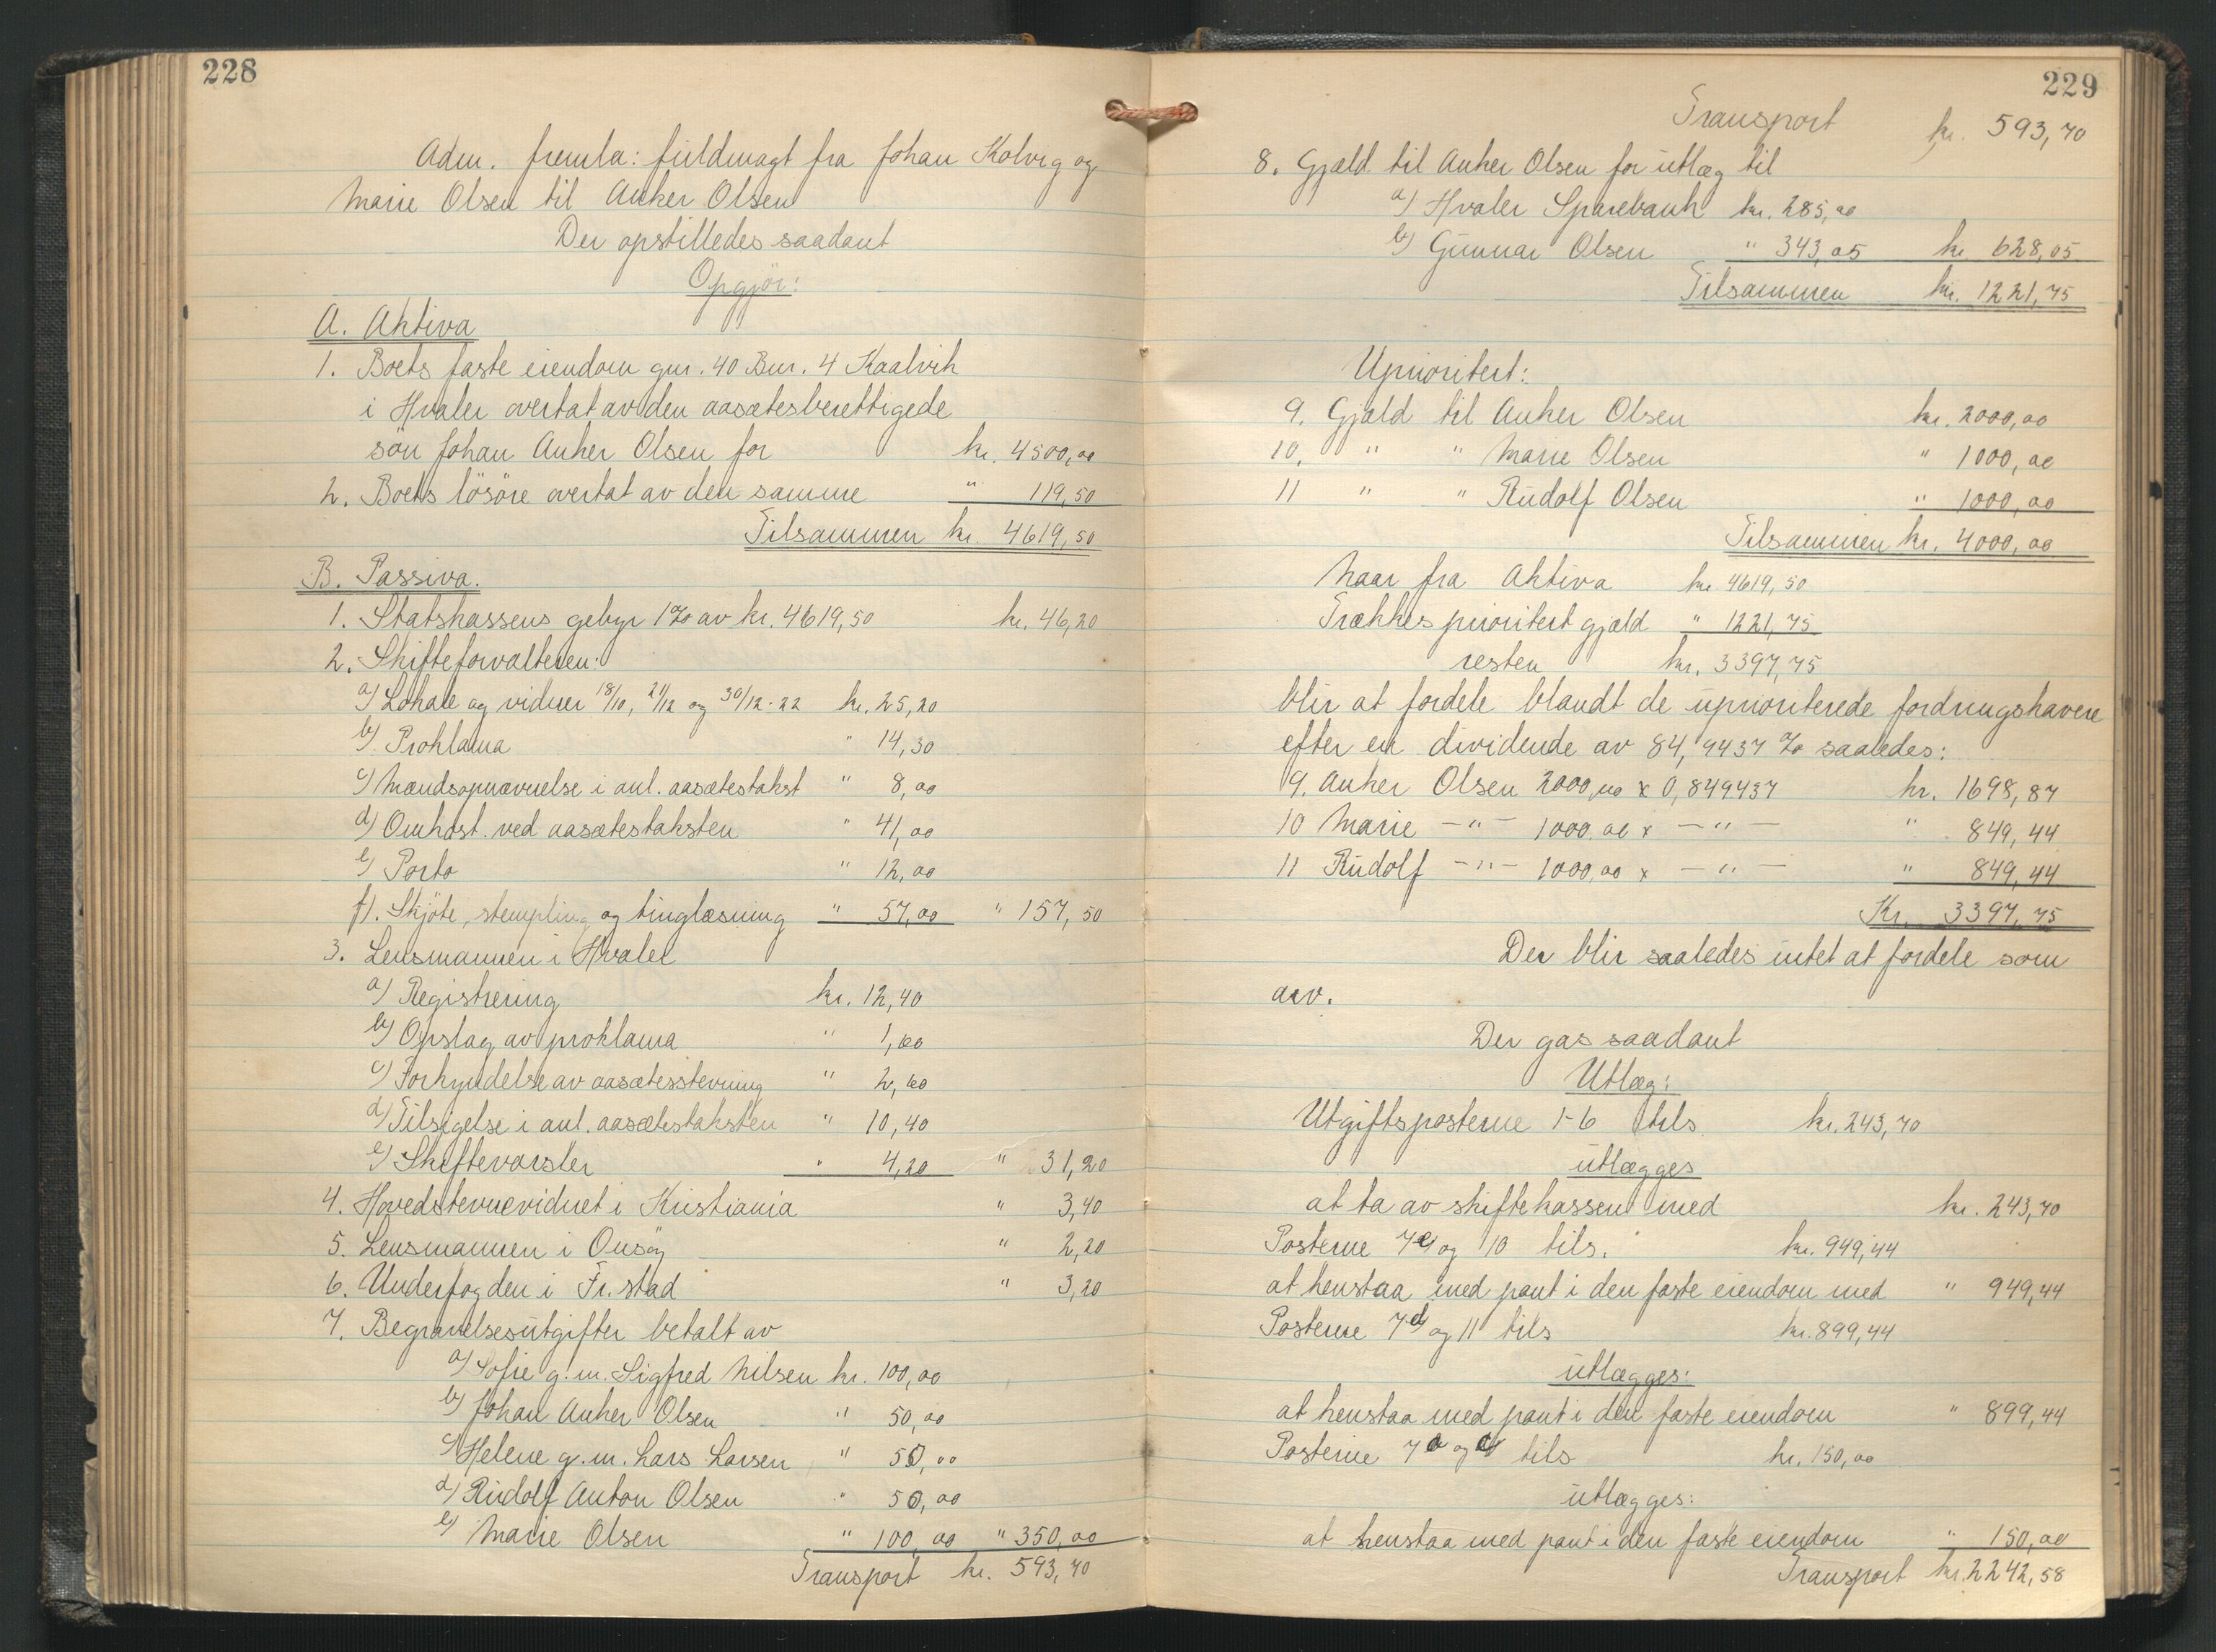 228
Adm. fremla: fuldmagt fra Johan Kolvig og
Marie Olsen til Anker Olsen
Der opstilledes saadant
Opgjør:
A. Aktiva
1. Boets faste eiendom gnr. 40 Bnr. 4 Kaalvik
i Hvaler overtat av den aasætesberettigede
søn Johan Anker Olsen for kr. 4500,00
2. Boets løsøre overtat av den samme " 119,50
Tilsammen kr. 4619,50
B. Passiva.
1. Statskassens gebyr 1% av kr. 4619,50 kr. 46,20
2. Skifteforvalteren:
a) Lokale og vidner 18/10, 21/12 og 30/12-22 kr. 25,20
b) Proklama " 14,30
c) Mændsopnævnelse i anl. aasætestakst " 8,00
d) Omkost. ved aasætestaksten " 41,00
e) Porto " 12,00
f). Skjøte, stempling og tinglæsning " 57,00 " 157,50
3. Lensmannen i Hvaler
a) Registrering kr. 12,40
b) Opslag av proklama " 1,60
c) Forkyndelse av aasætesstevning " 2,60
d) Tilsigelse i anl. aasætestaksten " 10,40
e) Skiftevarsler " 4,20 " 31,20
4. Hovedstevnevidnet i Kristiania " 3,40
5. Lensmannen i Onsøy " 2,20
6. Underfogden i Fr.stad " 3,20
7. Begravelsesutgifter betalt av
a) Sofie g. m. Sigfred Nilsen kr. 100,00
b) Johan Anker Olsen " 50,00
c) Helene g. m. Lars Larsen " 50,00
d) Rudolf Anton Olsen " 50,00
e) Marie Olsen " 100,00 " 350,00
Transport kr. 593,70
229
Transport kr. 593,70
8. Gjæld til Anker Olsen for utlæg til
a) Hvaler Sparebank kr. 285,00
b) Gunnar Olsen " 343,05 kr 628,05
Tilsammen kr. 1221,75
Uprioritert:
9. Gjæld til Anker Olsen kr. 2000,00
10. " " Marie Olsen " 1000,00
11 " " Rudolf Olsen " 1000,00
Tilsammen kr. 4000,00
Naar fra Aktiva kr. 4619,50
Trækkes prioritert gjæld " 1221,75
resten kr. 3397,75
blir at fordele blandt de uprioriterede fordringshavere
efter en dividende av 84,9437 % saaledes:
9. Anker Olsen 2000,00 x 0,849437 kr. 1698,87
10 Marie -"- 1000.00 x -"- " 849,44
11 Rudolf -"- 1000,00 x -"- " 849,44
Kr. 3397,75
Der blir saaledes intet at fordele som
arv.
Der gas saadant
Utlæg:
Utgiftsposterne 1-6 tils. kr. 243,70
utlægges
at ta av skiftekassen med kr. 243,70
Posterne 7e) og 10 tils. kr. 949,44
at henstaa med pant i den faste eiendom med " 949,44
Posterne 7d) og 11 tils kr. 899,44
utlægges:
at henstaa med pant i den faste eiendom " 899,44
Posterne 7a og c) tils kr. 150,00
utlægges:
at henstaa med pant i den faste eiendom " 150,00
Transport kr. 2242,58